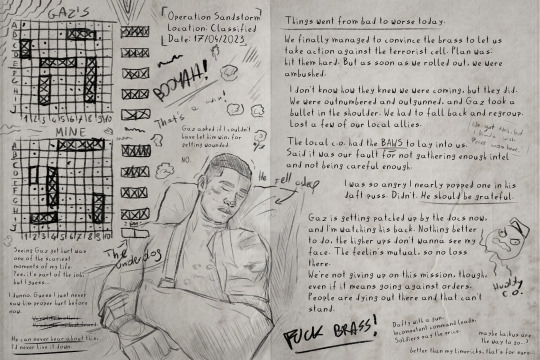 GAZ'S
A
B
C
D
E
F
G
H
I
J
1 2 3 4 5 6 7 8 9 10
MINE
A
B
C
D
E
F
G
H
I
J
1 2 3 4 5 6 7 8 9 10
Seeing Gaz get hurt was
one of the scariest
moments of my life.
Yes, it's a part of the job,
but I guess...
I dunno. Guess I just never
saw him proper hurt before
now.
He can never hear about this,
I'd never live it down.
Operation Sandstorm
Location: Classified
Date: 17/04/2023
BOOYAH!
That's a win!
Gaz asked if I couldn't
have let him win, for
getting wounded.
NO.
He fell asleep
The underdog
Things went from bad to worse today.
We finally managed to convince the brass to let us
take action against the terrorist cell. Plan was:
hit them hard. But as soon as we rolled out, we were
ambushed.
I don't know how they knew we were coming, but they did.
We were outnumbered and outgunned, and Gaz took a
bullet in the shoulder. We had to fall back and regroup.
Lost a few of our local allies.
The local c.o. had the BAWS to lay into us.
Said it was our fault for not gathering enough intel
and not being careful enough.
I was so angry I nearly popped one in his
daft puss. Didn't. He should be grateful.
Gaz is getting patched up by the docs now,
and I'm watching his back. Nothing better
to do, the higher ups don't wanna see my
face. The feelin's mutual, so no loss
there.
We're not giving up on this mission, though,
even if it means going against orders.
People are dying out there and that can't
stand.
C.O.
FUCK BRASS!
Dafty with a gun,
Incompetent command leads,
Soldiers pay the price.
maybe haikus are
the way to go..?
better than my limericks, that's for sure